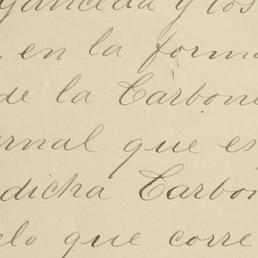 yanceda y los
en la forma
de la Carbone
ernal que es
dicha Carbon
elo que corre